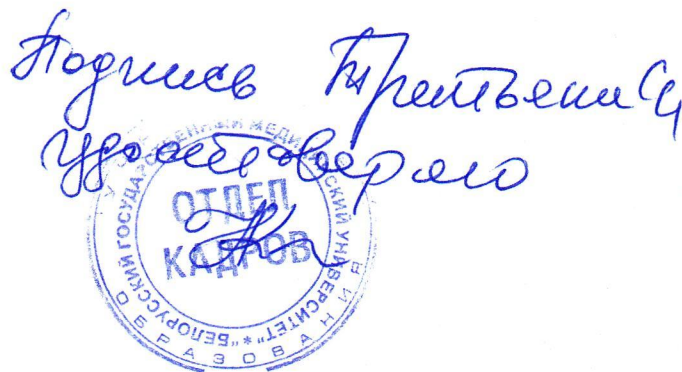 Подпись Третьяк С.И.
удостоверяю
ОТДЕЛ
КАДРОВ
"БЕЛОРУССКИЙ ГОСУДАРСТВЕННЫЙ МЕДИЦИНСКИЙ УНИВЕРСИТЕТ" *
ОБРАЗОВАНИЯ